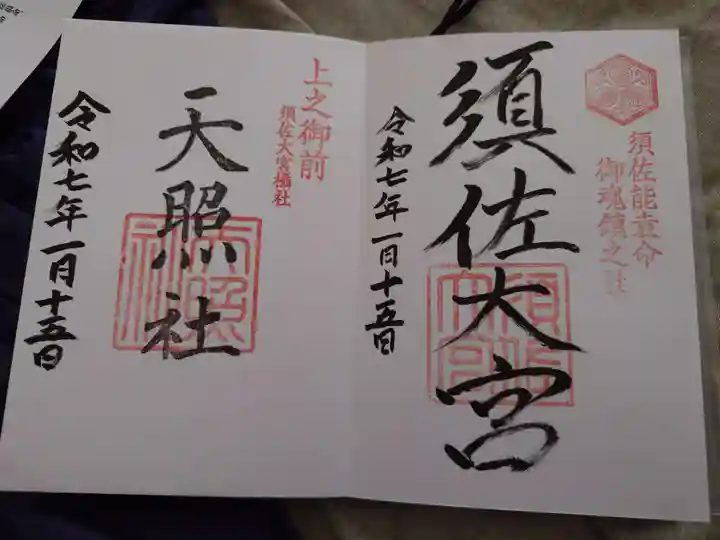 須佐能袁命
御魂鎮之社
須佐大宮
須佐大宮
令和七年一月十五日
上之御前
須佐大宮攝社
天照社
天照社
令和七年一月十五日